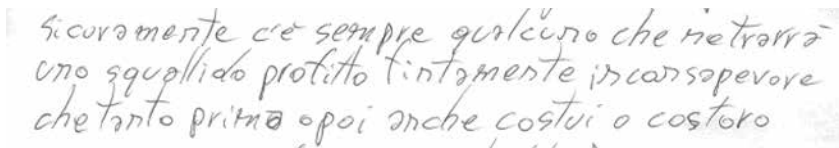 sicuramente c'è sempre qualcuno che ne trarrà
uno squallido profitto fintamente inconsapevore
che tanto prima o poi anche costui o costoro